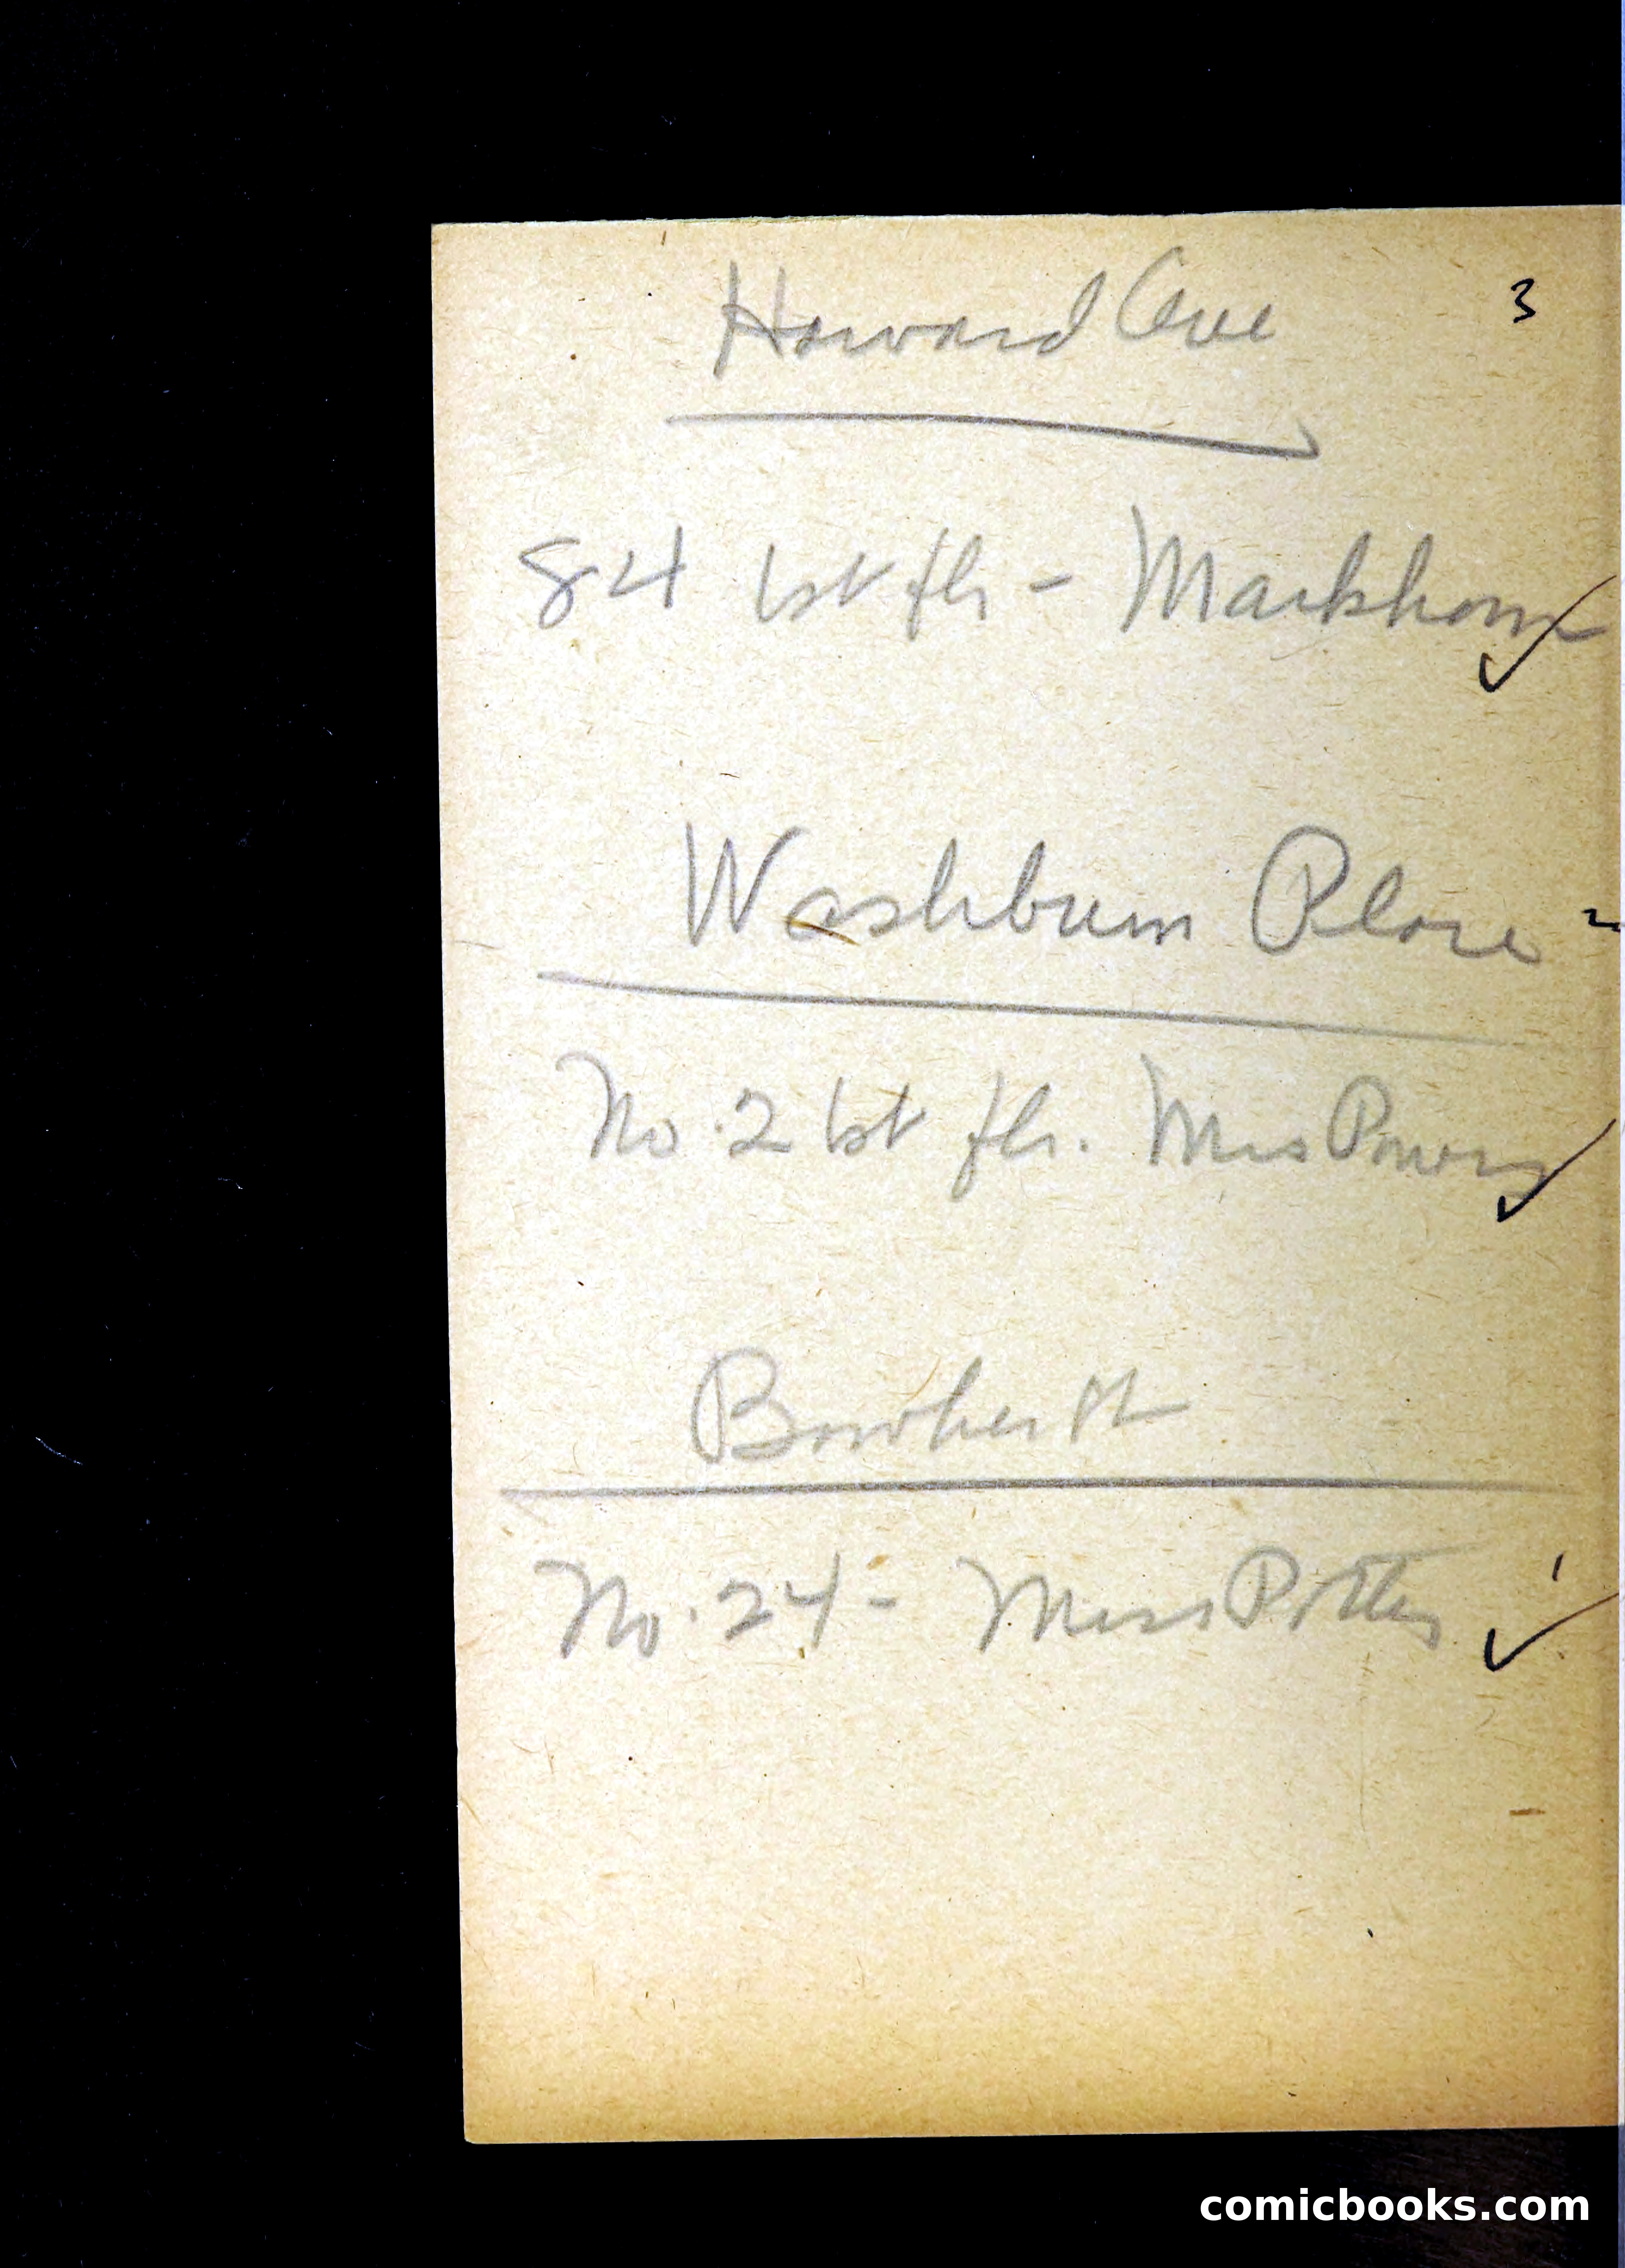 Howard Ave 3
84 1st flr - Markham
Washburn Place
No. 2 1st flr. Mrs Powers
Bowker St
No. 24 - Miss Potter
comicbooks.com